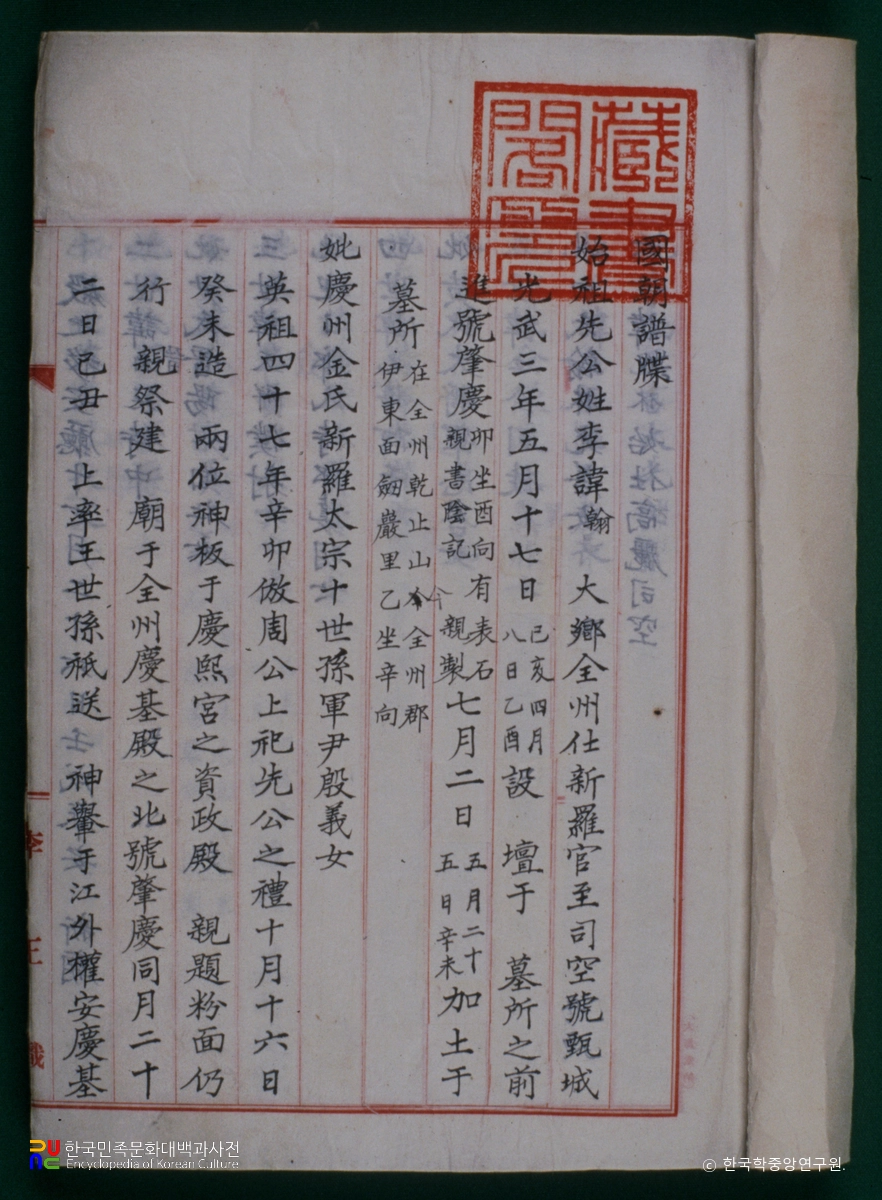 藏書
閣印
國朝譜牒
始祖先公姓李諱翰 大鄉全州仕新羅官至司空號甄城
光武三年五月十七日 己亥四月八日乙酉 設 壇于 墓所之前
進號肇慶 卯坐酉向有表石 親書陰記 親製 七月二日 五月二十五日辛未 加土于
墓所 在全州乾止山今全州郡伊東面劒巖里乙坐辛向
今
妣慶州金氏新羅太宗十世孫軍尹殷義女
英祖四十七年辛卯倣周公上祀先公之禮十月十六日
癸未造 兩位神板于慶熙宮之資政殿 親題粉面仍
行 親祭建 廟于全州慶基殿之北號肇慶同月二十
二日己丑 上率王世孫祇送 神轝于江外權安慶基
李王職
한국민족문화대백과사전
Encyclopedia of Korean Culture
© 한국학중앙연구원.